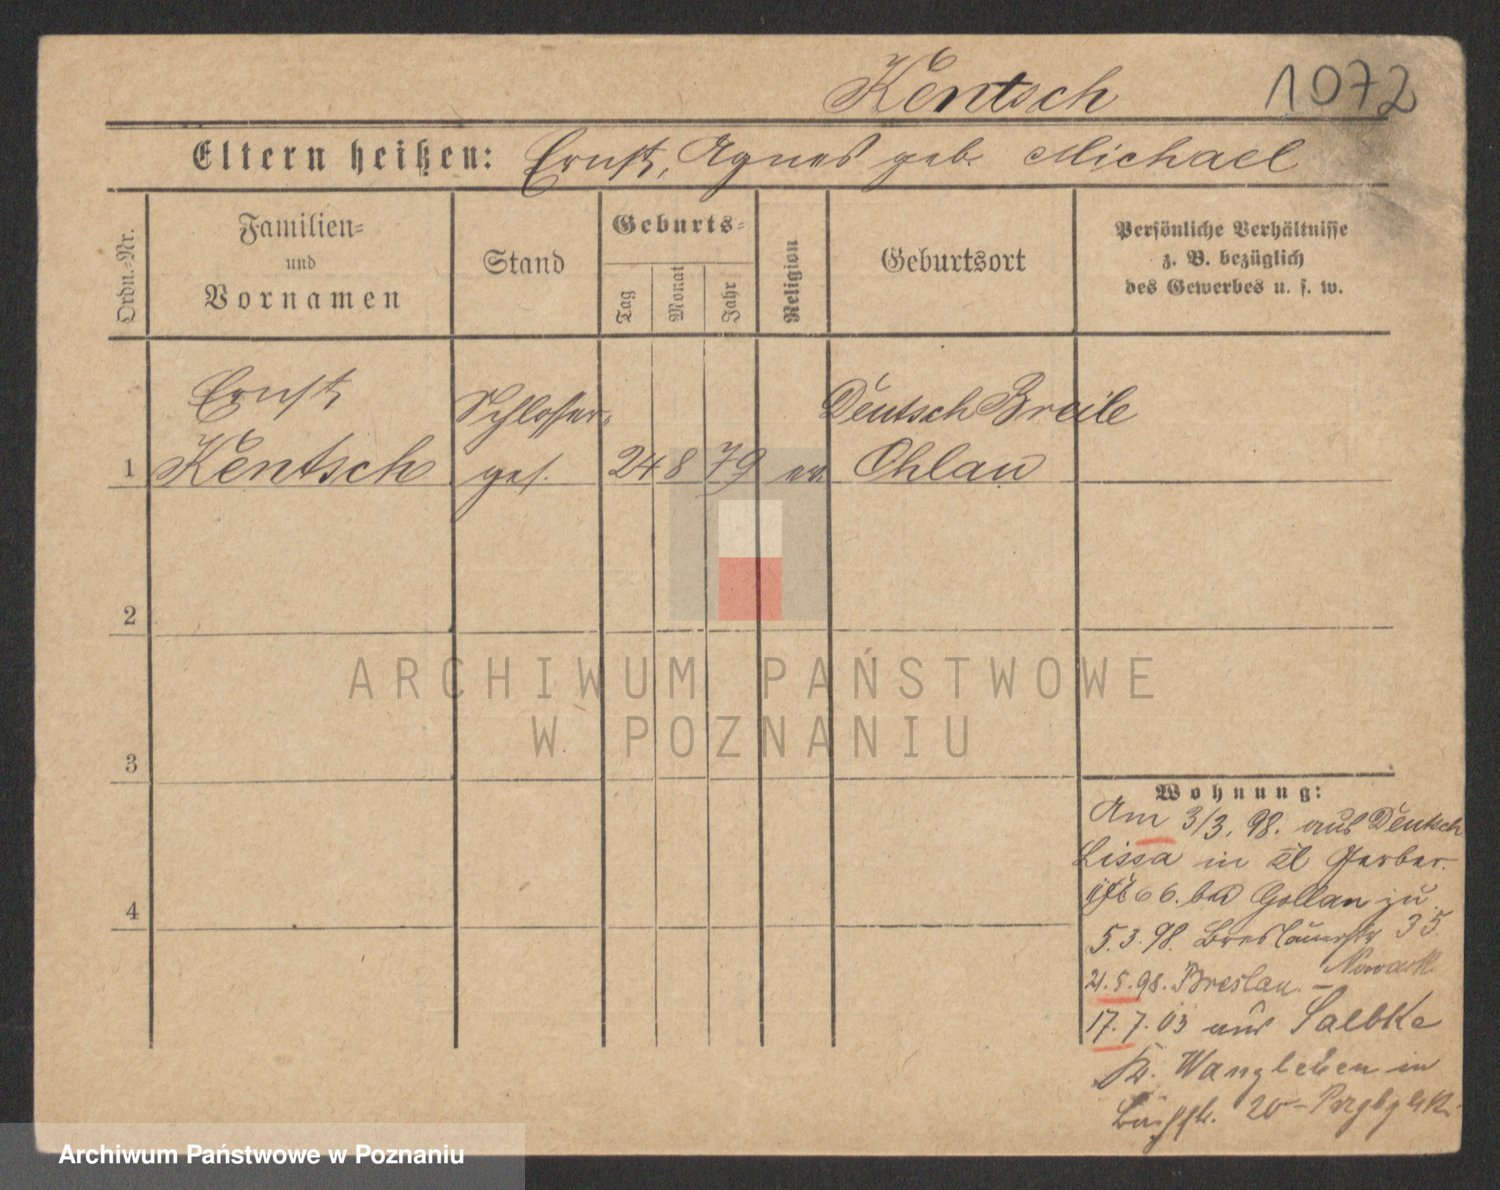 Kentsch 1072
Eltern heißen: Ernst, Agnes geb. Michael
Ordn.-Nr.
Familien-
und
Vornamen
Stand
Geburts-
Tag
Monat
Jahr
Religion
Geburtsort
Persönliche Verhältnisse
z. B. bezüglich
des Gewerbes u. s. w.
Ernst Schlosser- Deutsch Breile
1 Kentsch ges. 24 8 79 ev. Ohlau
2
3
4
Wohnung:
Am 3/3. 98. aus Deutsch
Lissa in Gerber-
66. bei Gollan zu
5.3.98. Breslauerstr 35
Nowack
21.5.98. Breslau. –
17.7.03 aus Salbke
Kr. Wanzleben in
20
ARCHIWUM PAŃSTWOWE
W POZNANIU
Archiwum Państwowe w Poznaniu